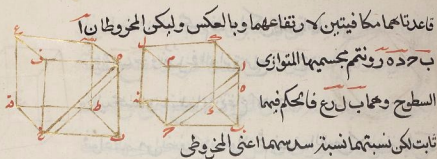 قاعدتاهما مكافيتين لارتفاعهما وبالعكس وليكن المخروطان ا
ب ح د ه ر ونتمم مجسميهما المتوازى
السطوح وهما ب ل ر ع فالحكم فيهما
ثابت لكن نسبتهما نسبة سدسهما اعنى المخروطى